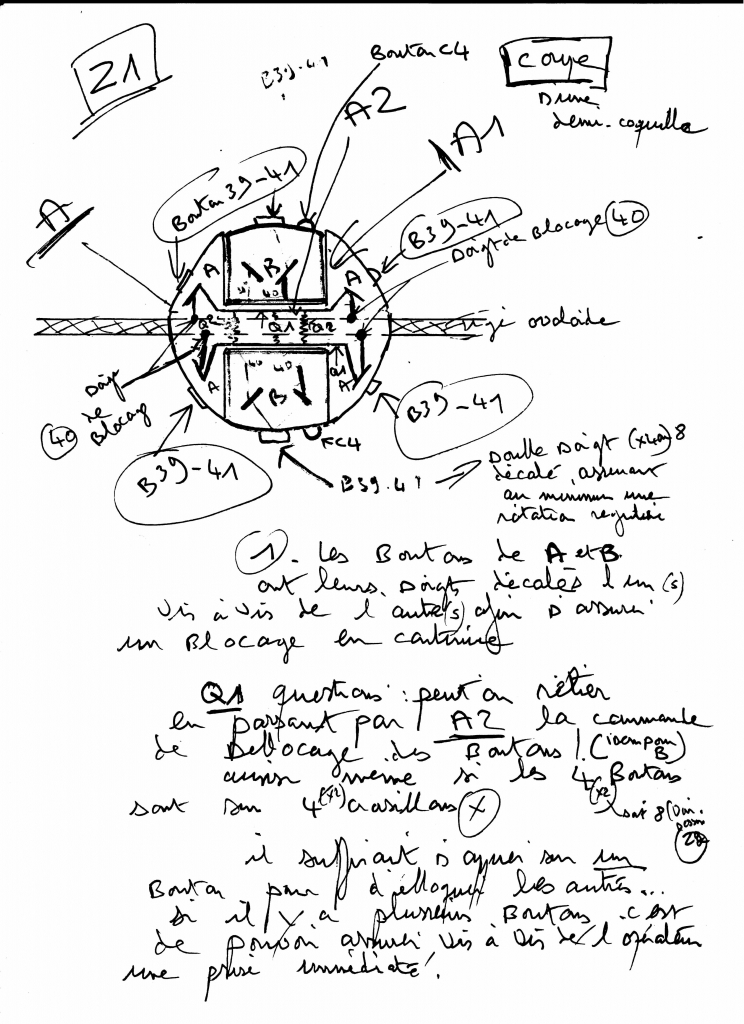 21
B39-41
Bouton C4
coupe
D'une
demi-coquille
A2
A1
Bouton 39-41
A
B39-41
Doigt de Blocage 40
A
B
A
40
Q1
tige ovoïde
Doigt
de
Blocage
40
A
B
40
40
Q1
A
B39-41
B39-41
FC4
B39-41
Double Doigt
décalé, assurant
au minimum une
rotation régulière
1. Les Boutons de A et B
ont leurs Doigts décalés l'un(s)
vis à vis de l'autre(s) afin d'assurer
un Blocage en continue
Q1 questions: peut on
en passant par A2 la commande
de Deblocage des Boutons! (idem pour B)
ainsi même si les 4 (x2) Boutons
sont sur 4 (x2) croisillons X
soit 8
28
il suffirait d'appuyer sur un
Bouton pour débloquer les autres...
si il y a plusieurs Boutons c'est
de pouvoir assurer vis à vis de l'opérateur
une prise immédiate.